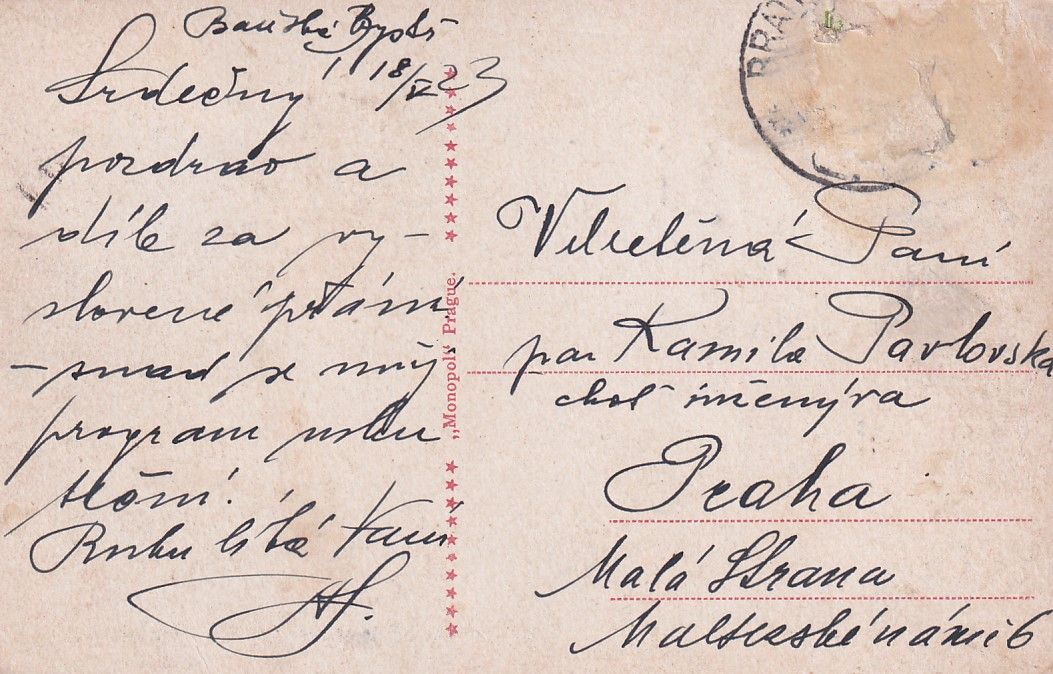 Baňská Bystr
18/V 23
Srdečný
pozdrav a
dík za vy-
slovené přání
- snad se můj
program usku
teční!
Ruku líbá Vám
„Monopol“ Prague.
BRAT
Velectěná Paní
paní Kamila Pavlovska
choť inženýra
Praha
Malá Strana
Maltezské námě 6